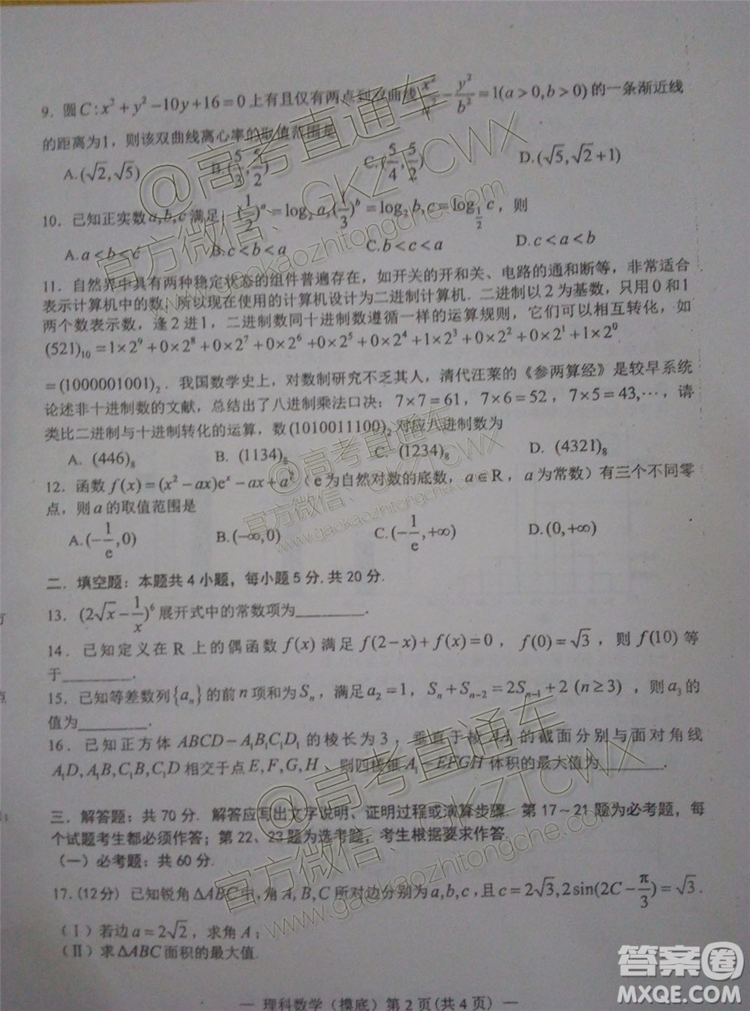 9. 圆C:x²+y²−10y+16=0上有且仅有两点到双曲线x²/a²−y²/b²=1(a>0,b>0)的一条渐近线
的距离为1，则该双曲线离心率的取值范围是
A.(√2,√5) B.(5/3,5/2) C.(5/4,5/2) D.(√5,√2+1)
10. 已知正实数a,b,c满足：(1/2)^a=log₂a,(1/3)^b=log₂b,c=log_{1/2}c，则
A.a<b<c B.c<b<a C.b<c<a D.c<a<b
11. 自然界中具有两种稳定状态的组件普遍存在，如开关的开和关、电路的通和断等，非常适合
表示计算机中的数，所以现在使用的计算机设计为二进制计算机．二进制以2为基数，只用0和1
两个数表示数，逢2进1，二进制数同十进制数遵循一样的运算规则，它们可以相互转化，如
(521)₁₀=1×2⁹+0×2⁸+0×2⁷+0×2⁶+0×2⁵+0×2⁴+1×2³+0×2²+0×2¹+1×2⁰
=(1000001001)₂．我国数学史上，对数制研究不乏其人，清代汪莱的《参两算经》是较早系统
论述非十进制数的文献，总结出了八进制乘法口决：7×7=61，7×6=52，7×5=43,⋯，请
类比二进制与十进制转化的运算，数(1010011100)₂对应八进制数为
A. (446)₈ B. (1134)₈ C. (1234)₈ D. (4321)₈
12. 函数f(x)=(x²−ax)eˣ−ax+a²（e为自然对数的底数，a∈R，a为常数）有三个不同零
点，则a的取值范围是
A.(−1/e,0) B.(−∞,0) C.(−1/e,+∞) D.(0,+∞)
二．填空题：本题共4小题，每小题5分,共20分．
13. (2√x−1/x)⁶展开式中的常数项为________．
14. 已知定义在R上的偶函数f(x)满足f(2−x)+f(x)=0，f(0)=√3，则f(10)等
于________．
15. 已知等差数列{aₙ}的前n项和为Sₙ，满足a₂=1，Sₙ+Sₙ₋₂=2Sₙ₋₁+2 (n≥3)，则a₃的
值为________．
16. 已知正方体ABCD−A₁B₁C₁D₁的棱长为3，垂直于棱AA₁的截面分别与面对角线
A₁D,A₁B,C₁B,C₁D相交于点E,F,G,H，则四棱锥A₁−EFGH体积的最大值为________．
三．解答题：共70分．解答应写出文字说明、证明过程或演算步骤．第17～21题为必考题，每
个试题考生都必须作答；第22、23题为选考题，考生根据要求作答．
（一）必考题：共60分．
17.(12分) 已知锐角ΔABC中,角A,B,C所对边分别为a,b,c，且c=2√3,2sin(2C−π/3)=√3．
（Ⅰ）若边a=2√2，求角A；
（Ⅱ）求ΔABC面积的最大值．
— 理科数学（摸底）第2页(共4页) —
@高考直通车
官方微信：GKZTCWX
www.gaokaozhitongche.com
@高考直通车
官方微信：GKZTCWX
www.gaokaozhitongche.com
@高考直通车
官方微信：GKZTCWX
www.gaokaozhitongche.com
答案圈
MXQE.COM